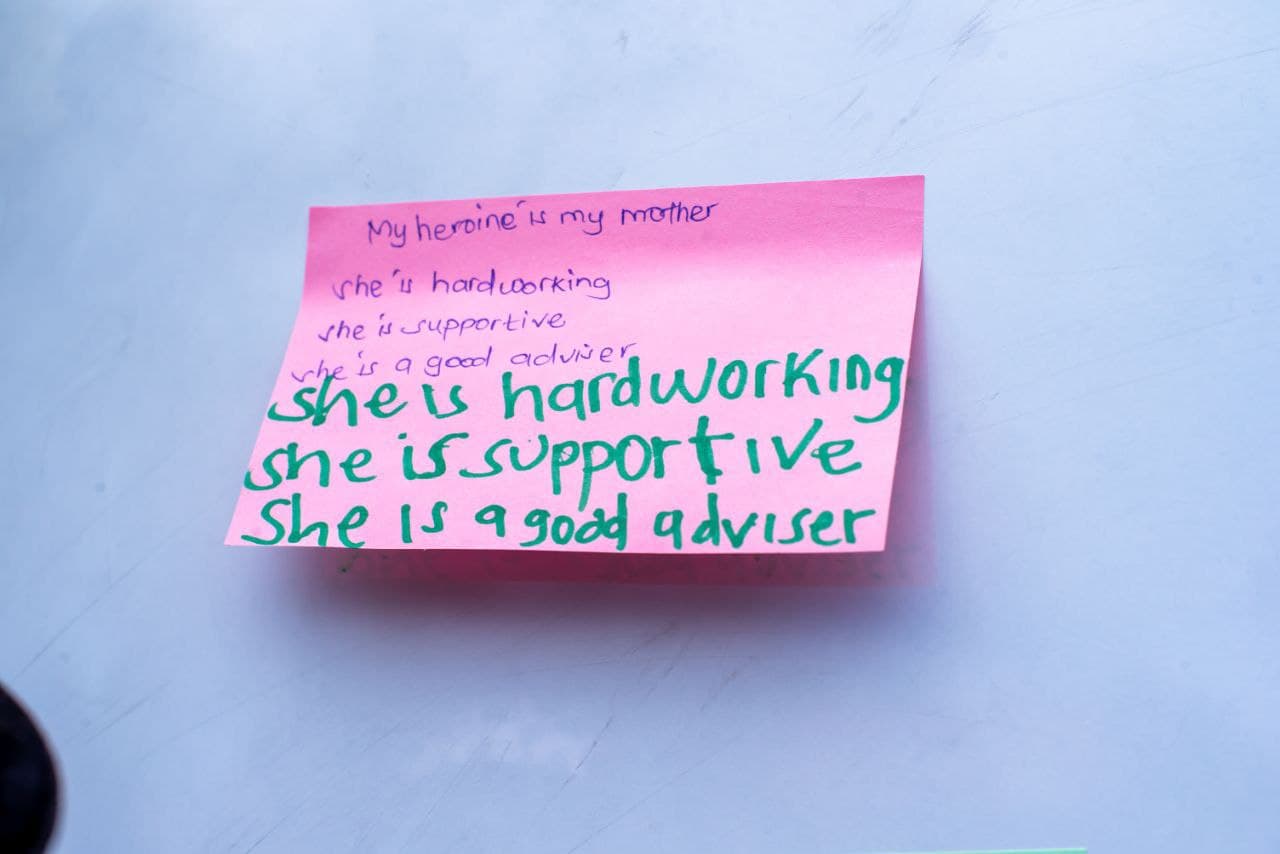 My heroine is my mother
she is hardworking
she is supportive
she is a good adviser
she is hardworking
she is supportive
She is a good adviser